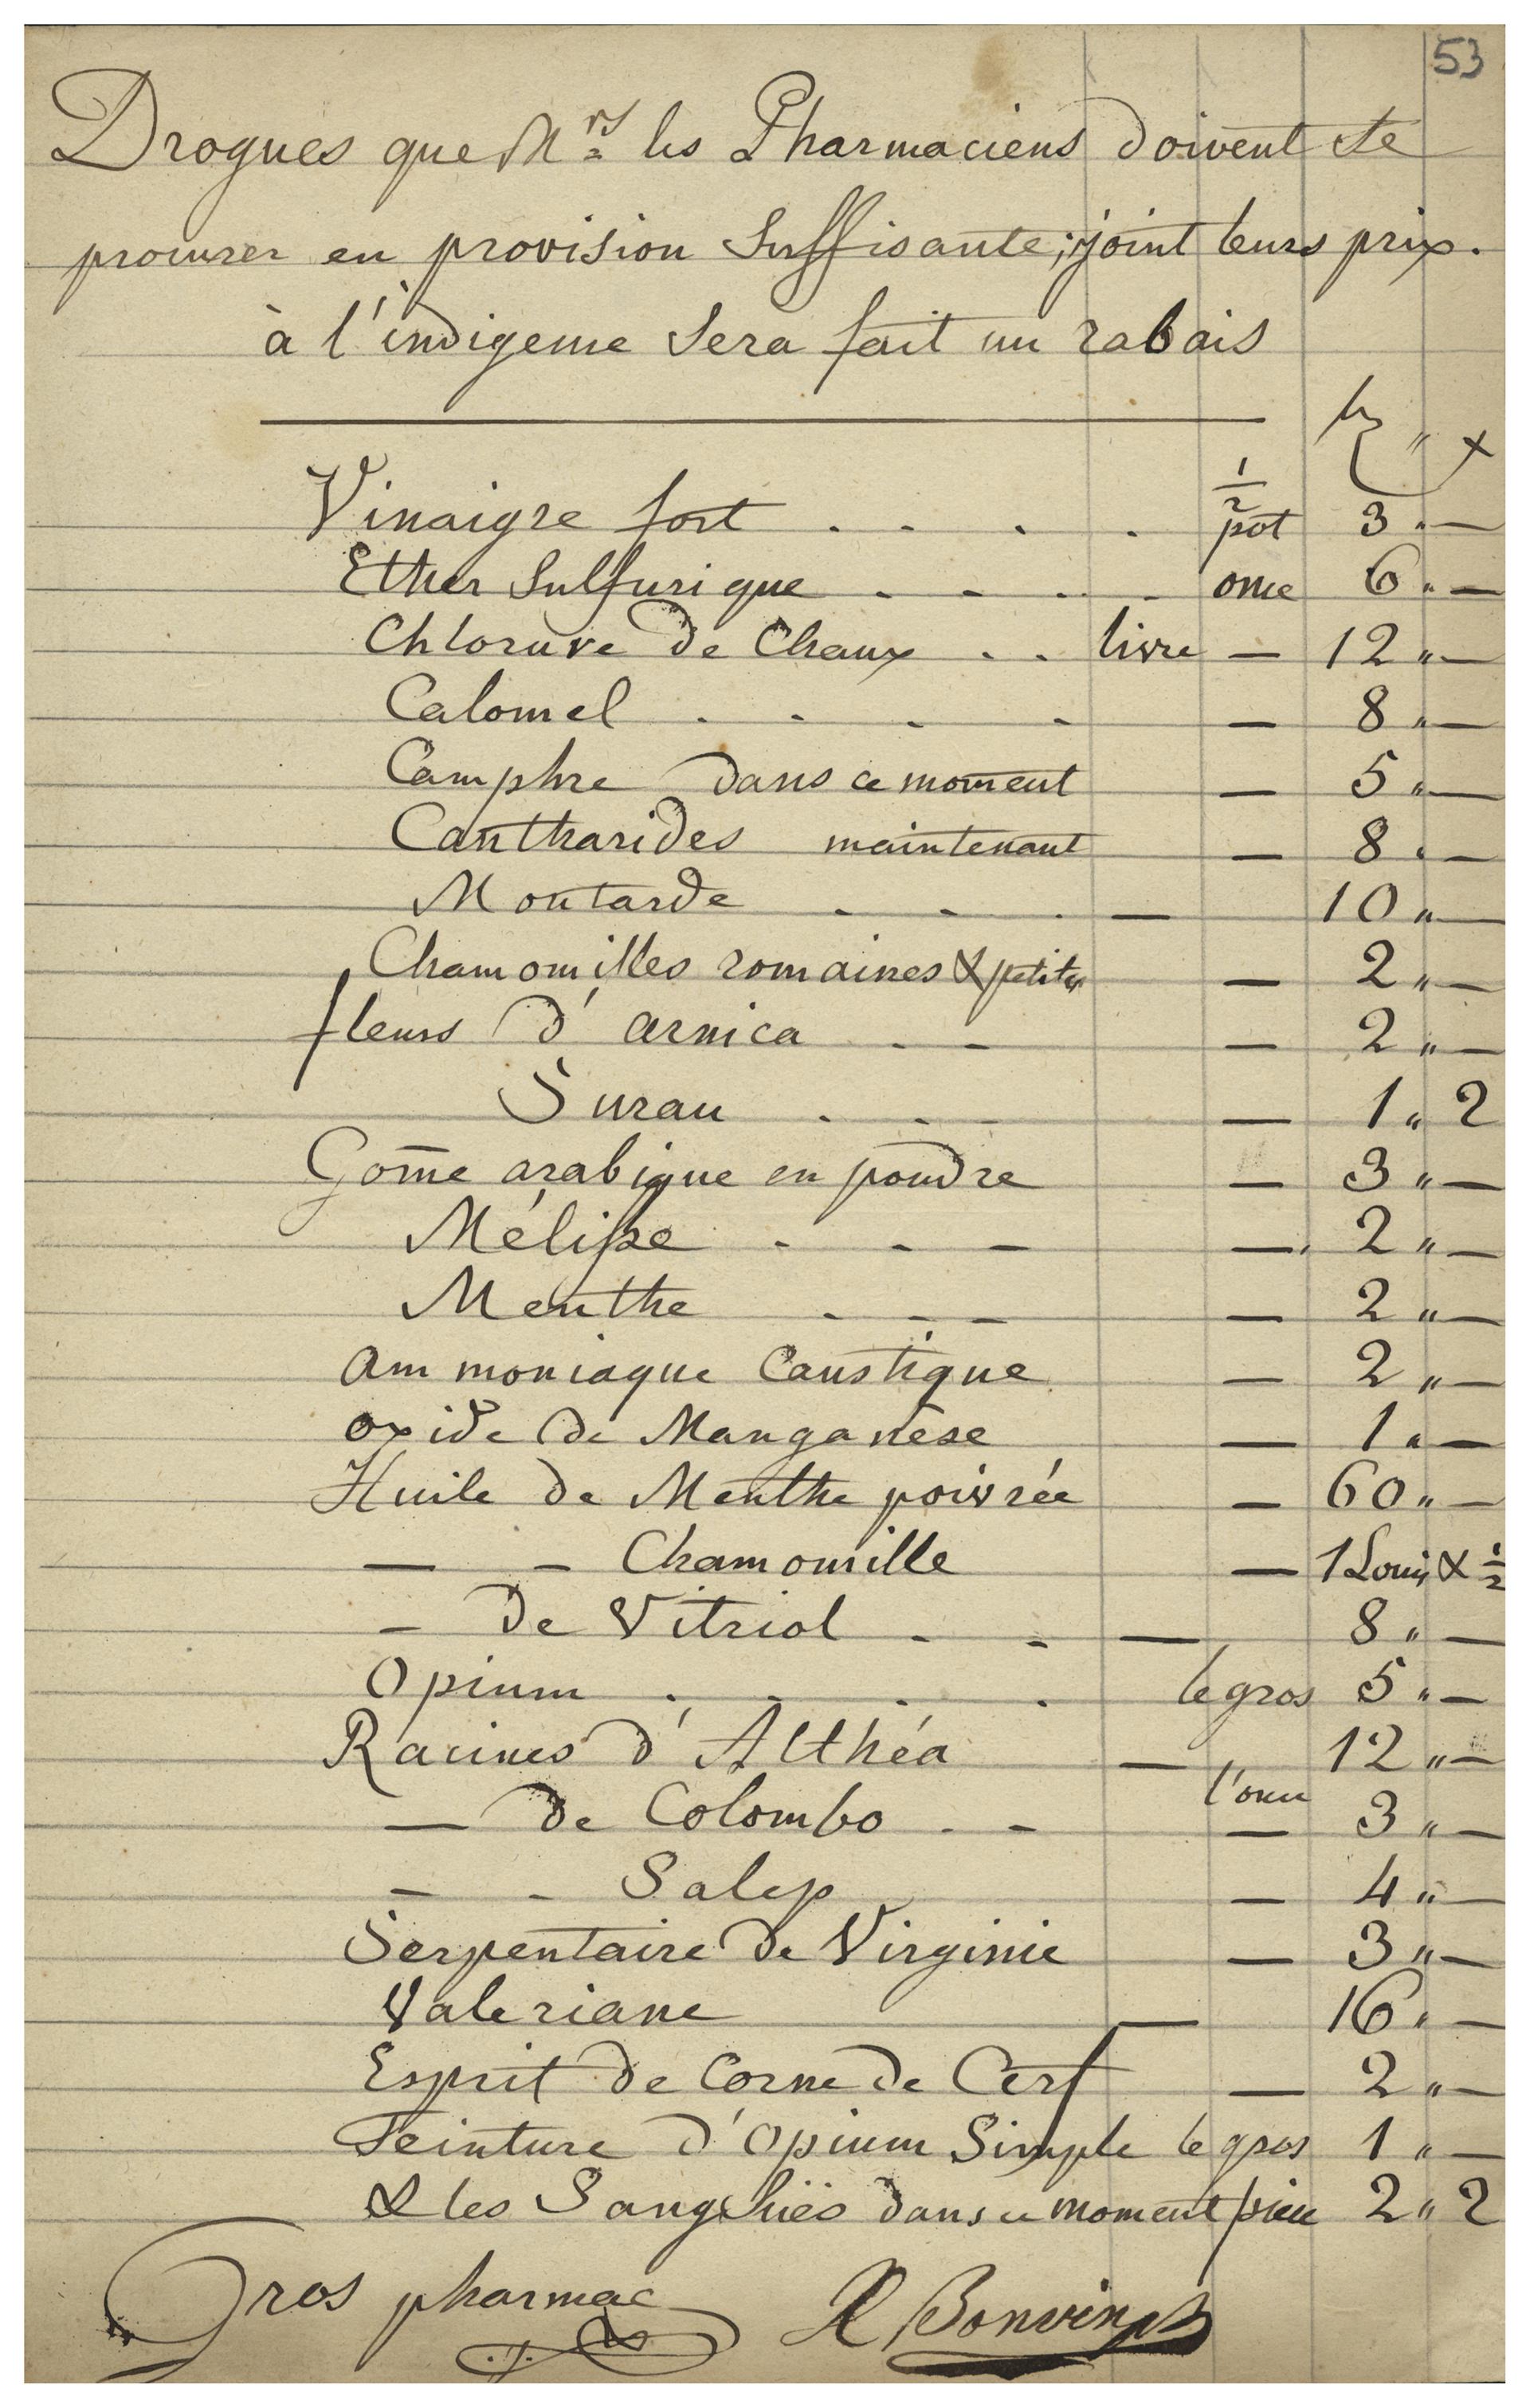 53
Drogues que Mrs les Pharmaciens doivent se
procurer en provision suffisante; joint leurs prix.
à l'indigence sera fait un rabais
bz " x
Vinaigre fort . . . . 1/2 pot 3 " —
Ether Sulfurique . . . . once 6 " —
Chlorure de Chaux . . livre — 12 " —
Calomel . . . . — 8 " —
Camphre dans ce moment — 5 " —
Cantharides maintenant — 8 " —
Moutarde . . . — 10 " —
Chamomilles romaines & petites — 2 " —
fleurs d'arnica . . — 2 " —
Surau . . . — 1 " 2
Gom̄e arabique en poudre — 3 " —
Mélisse . . . — 2 " —
Menthe . . . — 2 " —
Ammoniaque Caustique — 2 " —
oxide de Manganèse — 1 " —
Huile de Menthe poivrée — 60 " —
— — Chamomille — 1 Louis & 1/2
— de Vitriol . . — 8 " —
Opium . . . . le gros 5 " —
Racines d'Althéa — 12 " —
— de Colombo . . l'once — 3 " —
— — Salep — 4 " —
Serpentaire de Virginie — 3 " —
Valeriane — 16 " —
Esprit de Corne de Cerf — 2 " —
Teinture d'Opium Simple le gros 1 " —
& les Sangsües dans ce moment pièce 2 " 2
Gros pharmac R Bonvin